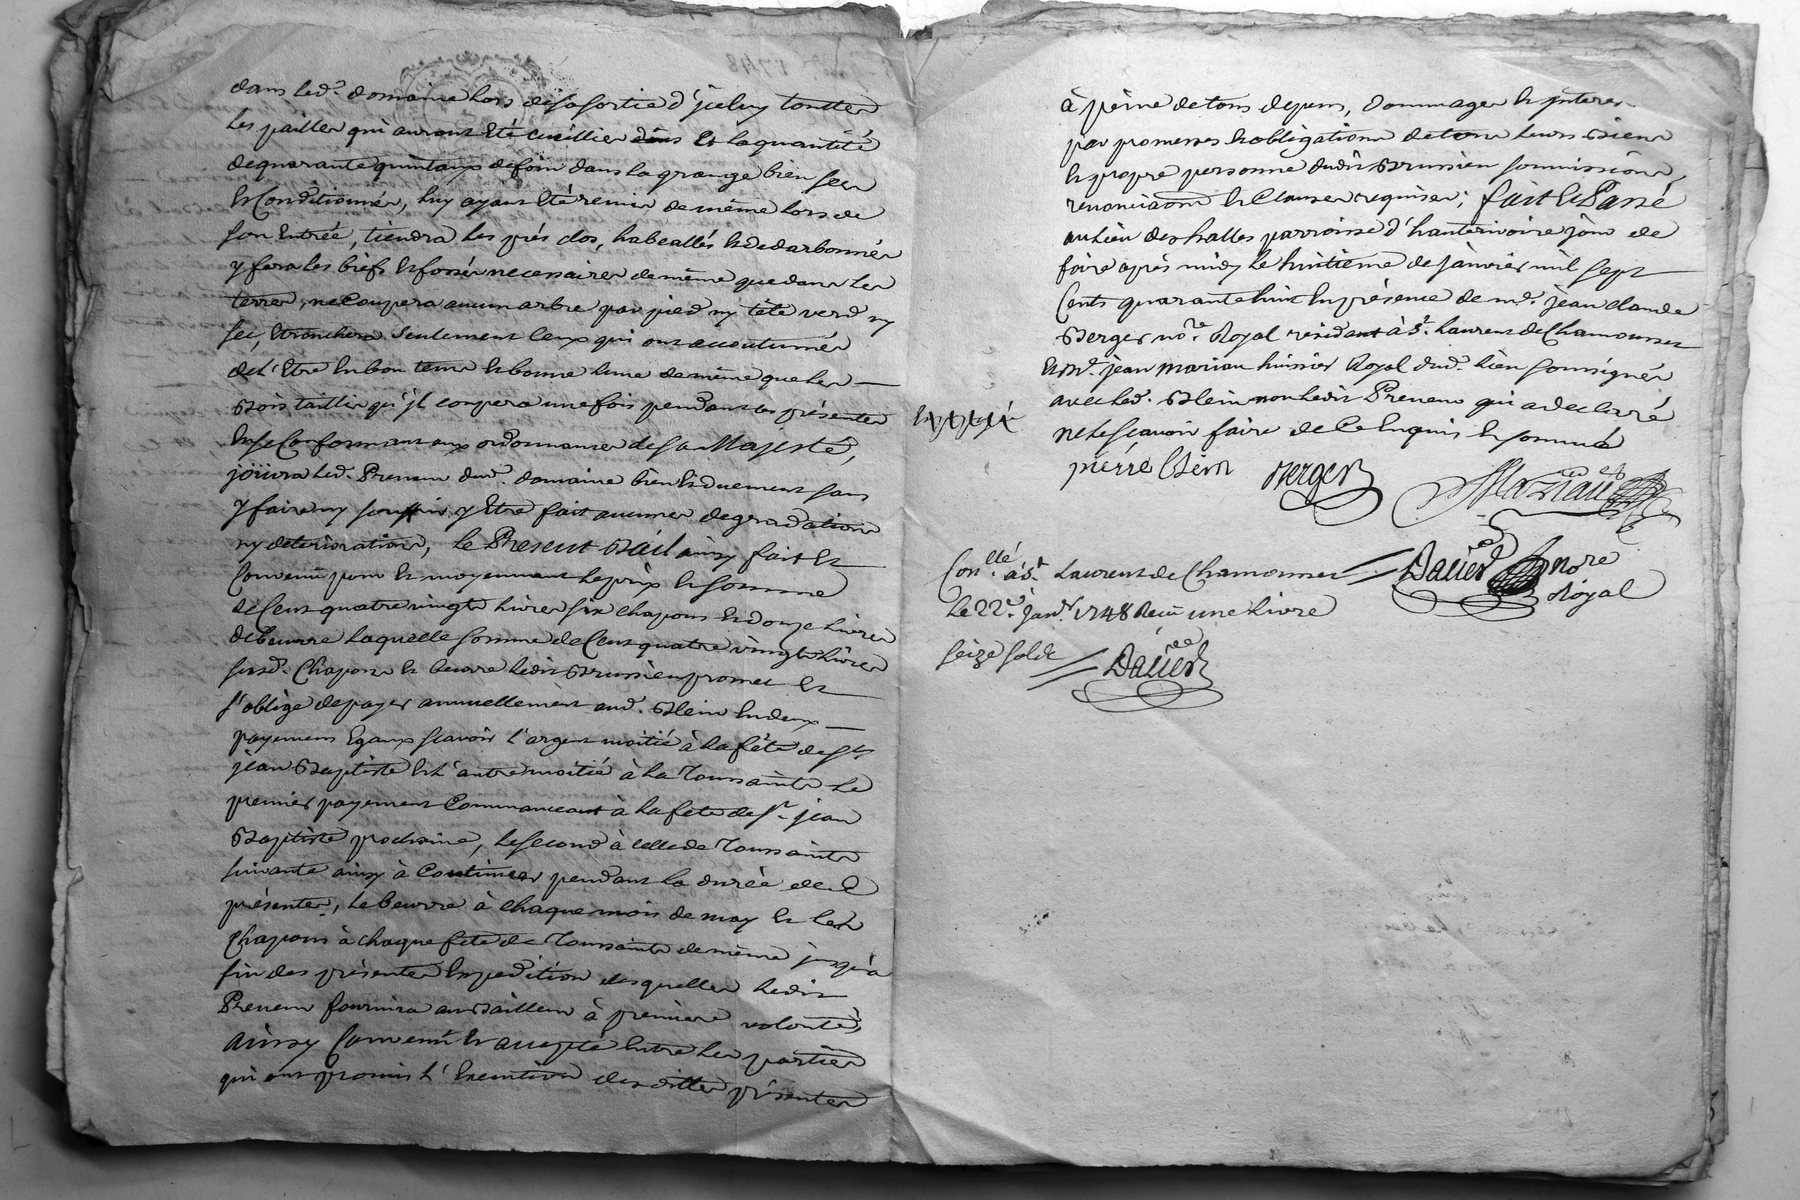 dans led.t domaine lors de sa sortie d'jceluy touttes
les pailles qui auront été cueillies dans et la quantité
de quarante quintaux de foin dans la grange bien secs
et Conditionnés, luy ayant été remis de même lors de
son Entrée, tiendra les prés clos, et dedarbonnés
y fera les biefs et fossés necessaires de même que dans les
terres, ne Coupera aucun arbre par pied ny tête verd ny
sec, Ebranchera seulement Ceux qui ont accoutumés
de l'Etre En bon tems et bonne lune de même que les
Bois taillis qu'jl coupera une fois pendant les présentes
En se Conformant aux ordonnances de sa Majesté,
joüira led. Preneur dud. domaine bien et duement sans
y faire ny souffrir y Etre fait aucunes degradations
ny deteriorations, le Present Bail ainsy fait et
Convenu pour et moyennant le prix et somme
de Cent quatre vingts livres six chapons et douze livres
de beurre laquelle somme de Cent quatre vingts livres
susd. Chapons et beurre ledit Brussien promet et
s'oblige de payer annuellement aud. Blein En deux
payemens Egaux scavoir l'argent moitié à la fête de St
jean Baptiste et l'autre moitié à la Toussaints le
premier payement Commanceant à la fete de St jean
Baptiste prochaine, le second à celle de Toussaints
suivante ainsy à Continuer pendant la durée des
présentes, le beurre à chaque mois de may et les
Chapons à chaque fete de Toussaints de même jusqu'a
fin des présentes Expedition desquelles ledit
Preneur fournira au Bailleur à première volonté,
ainsy Convenu et accepté Entre les parties
qui ont promis l'Execution des dittes présentes
à peine de tous depens, dommages et jnterets
par promesses et obligations de tous leurs biens
et propre personne dudit Brussien soumissions,
renonciations et Clauses requises; fait et Passé
au lieu des halles parroisse d'hauterivoire jour de
foire après midy le huitième de janvier mil sept
Cents quarante huit En présence de me. jean claude
Berger no.re Royal résidant à St. Laurent de Chamousset
et Me. jean Mariau huissier Royal dud. lieu soussignés
avec led. Blein non ledit Preneur qui a declarré
ne le scavoir faire de Ce Enquis et sommé
pierre blein Berger Mariau
Con.llé à St. Laurent de Chamousset Dalier no.re
Le 22e. Janv.r 1748 Recu une livre Royal
seize sols Dalier